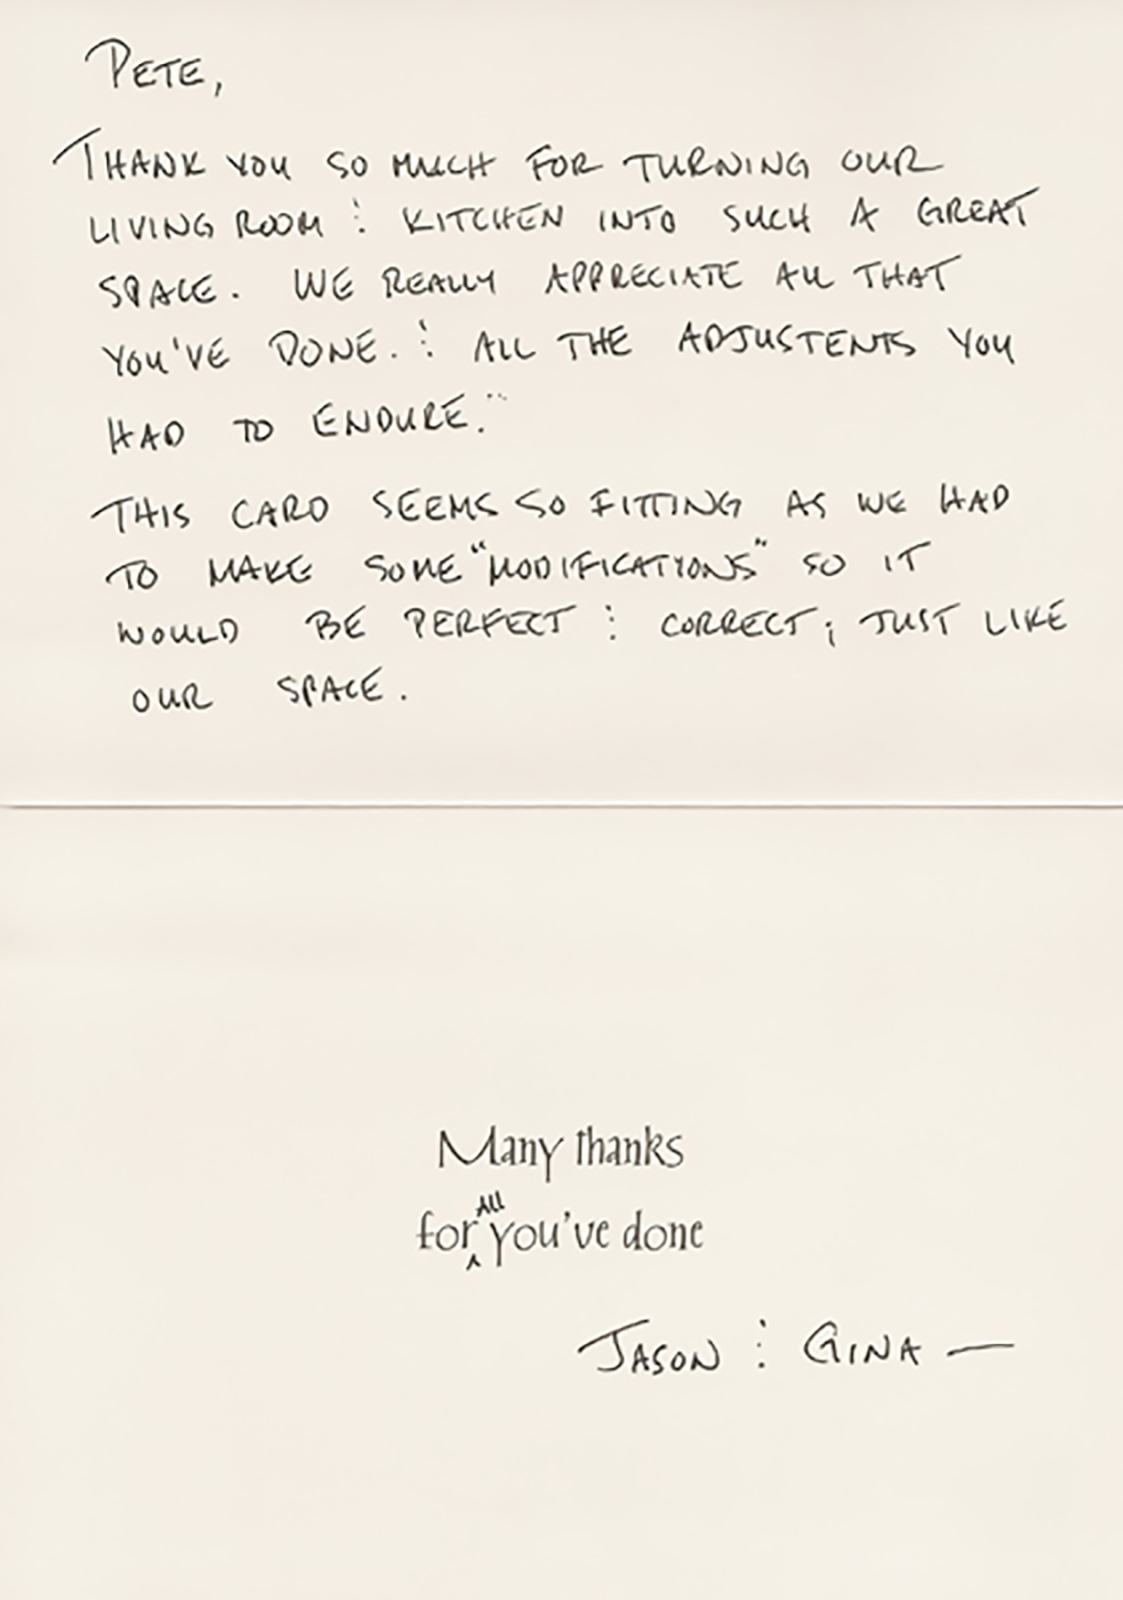 PETE,
THANK YOU SO MUCH FOR TURNING OUR
LIVING ROOM & KITCHEN INTO SUCH A GREAT
SPACE. WE REALLY APPRECIATE ALL THAT
YOU'VE DONE. & ALL THE ADJUSTENTS YOU
HAD TO ENDURE.
THIS CARD SEEMS SO FITTING AS WE HAD
TO MAKE SOME "MODIFICATIONS" SO IT
WOULD BE PERFECT & CORRECT; JUST LIKE
OUR SPACE.
Many thanks
for ALL you've done
JASON & GINA —